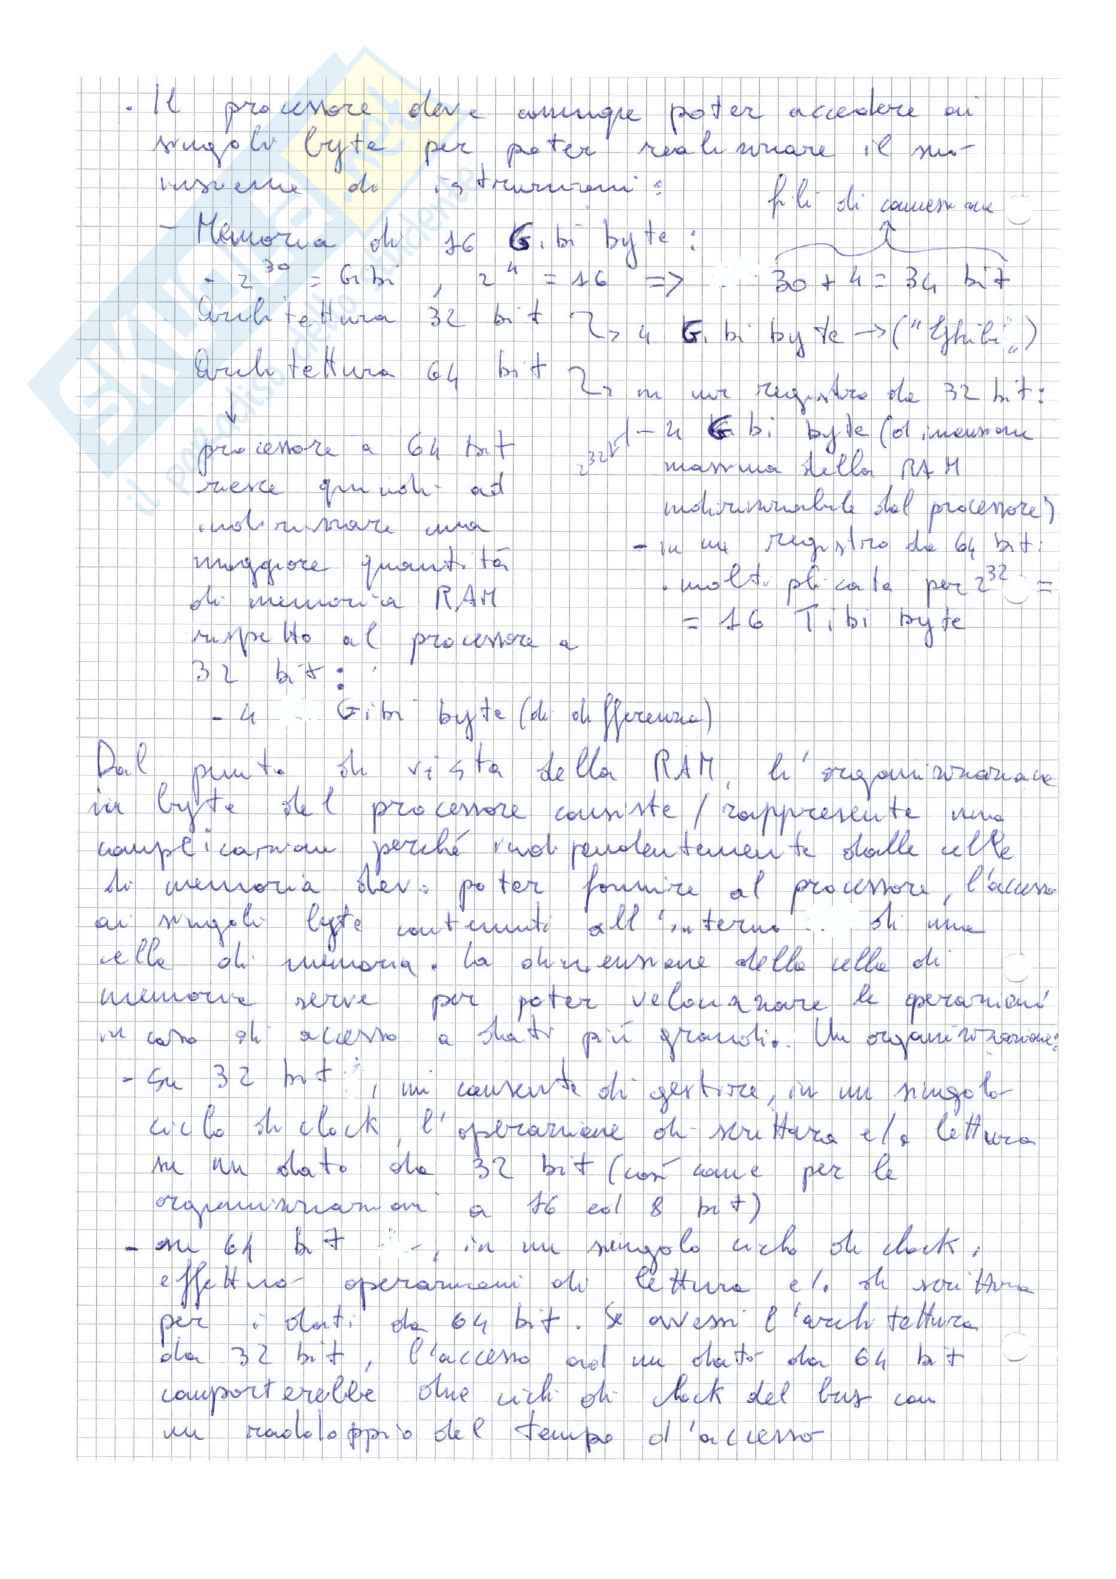 . Il processore deve comunque poter accedere ai
singoli byte per poter realizzare il suo
insieme di istruzioni:
fili di connessione
- Memoria di 16 Gibi byte:
- 2^30 = Gibi , 2^4 = 16 => 30 + 4 = 34 bit
Architettura 32 bit
4 Gibi byte -> ("Ghibi")
Architettura 64 bit
in un registro da 32 bit:
2^32
- 4 Gibi byte (dimensione
massima della RAM
indirizzabile dal processore)
- in un registro da 64 bit:
. moltiplicata per 2^32 =
= 16 Tibi byte
processore a 64 bit
riesce quindi ad
indirizzare una
maggiore quantità
di memoria RAM
rispetto al processore a
32 bit:
- 4 Gibi byte (di differenza)
Dal punto di vista della RAM, l'organizzazione
in byte del processore consiste / rappresenta una
complicazione perché indipendentemente dalle celle
di memoria deve poter fornire al processore, l'accesso
ai singoli byte contenuti all'interno di una
cella di memoria. La dimensione della cella di
memoria serve per poter velocizzare le operazioni
in caso di accesso a dati più grandi. Un organizzazione:
- Su 32 bit, mi consente di gestire, in un singolo
ciclo di clock, l'operazione di scrittura e/o lettura
su un dato da 32 bit (così come per le
organizzazioni a 16 ed 8 bit)
- su 64 bit, in un singolo ciclo di clock,
effettuo operazioni di lettura e/o di scrittura
per i dati da 64 bit. Se avessi l'architettura
da 32 bit, l'accesso ad un dato da 64 bit
comporterebbe due cicli di clock del bus con
un raddoppio del tempo d'accesso
SKUOLA.net
il paradiso dello studente